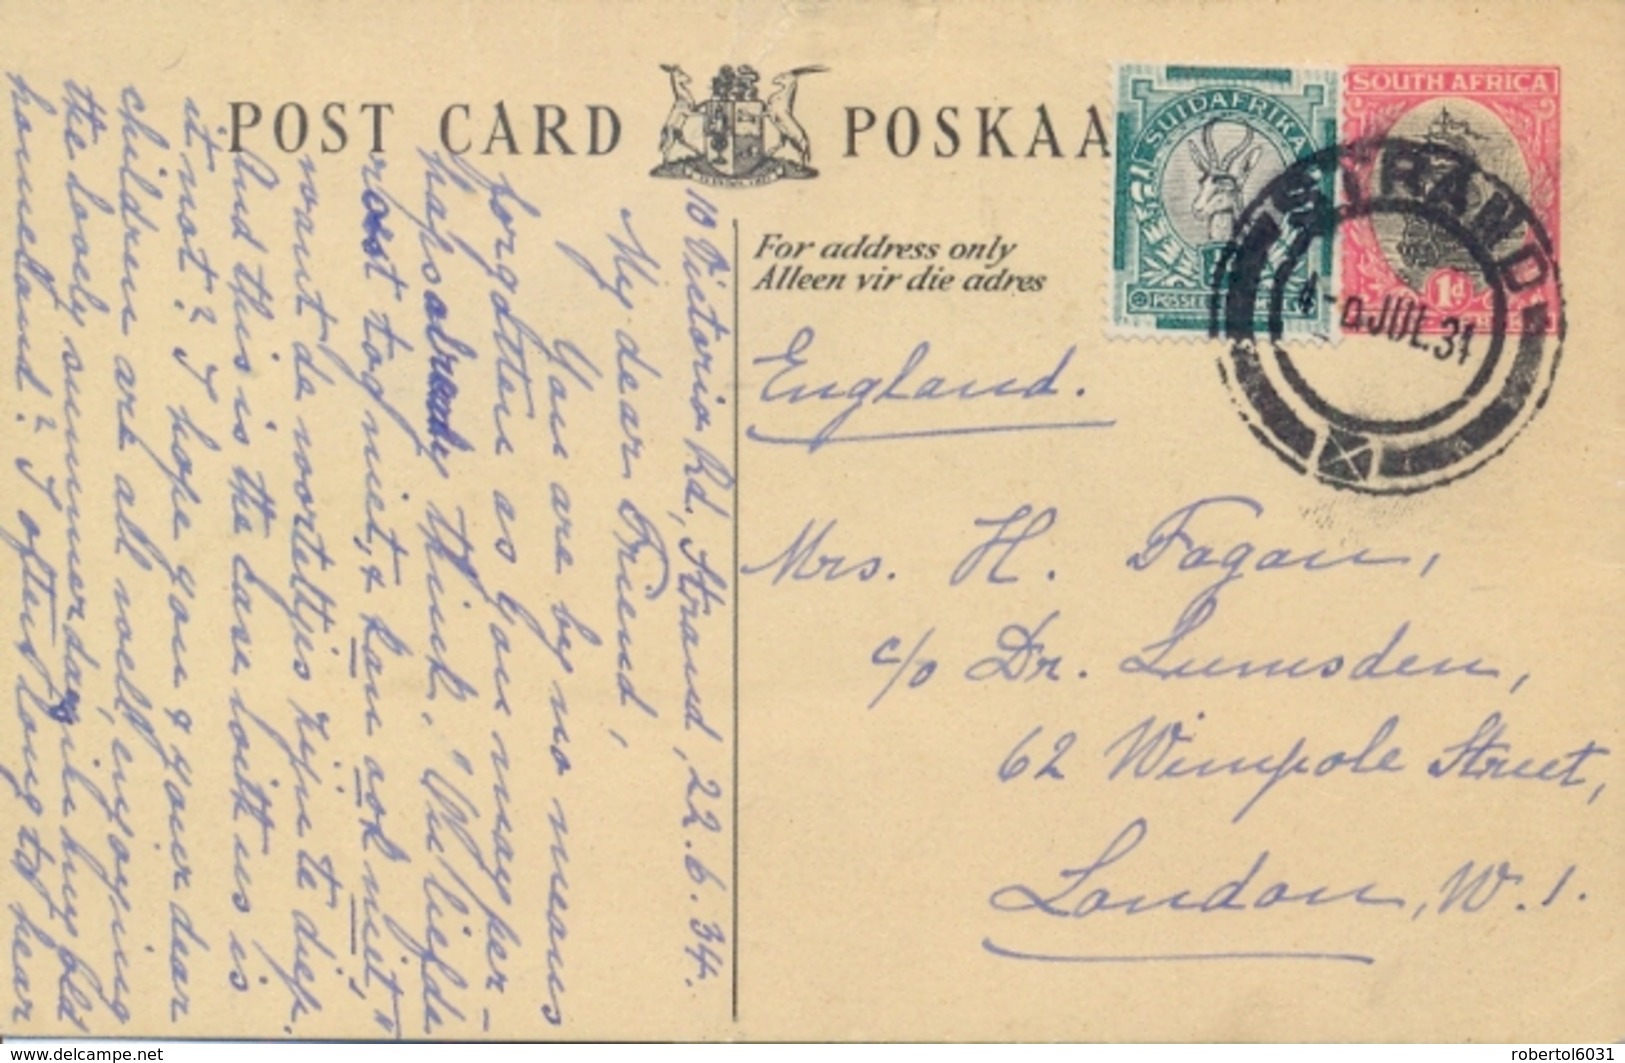 POST CARD POSKAA
SUIDAFRIKA
SOUTH AFRICA
1d
STRAND
JUL.34
For address only
Alleen vir die adres
England.
Mrs. H. Fagan,
c/o Dr. Lumsden,
62 Wimpole Street,
London, W.1.
10 Victoria Rd, Strand, 22.6.34.
My dear Friend,
You are by no means
forgotten as you may per-
haps already think. "Die liefde
roest tog niet, & kan ook niet,
want de worteltjes zijn te diep."
And this is the case with us is
it not? I hope you & your dear
children are all well, enjoying
the lovely summer days in hry old
homeland? I often long to hear
www.delcampe.net
robertol6031